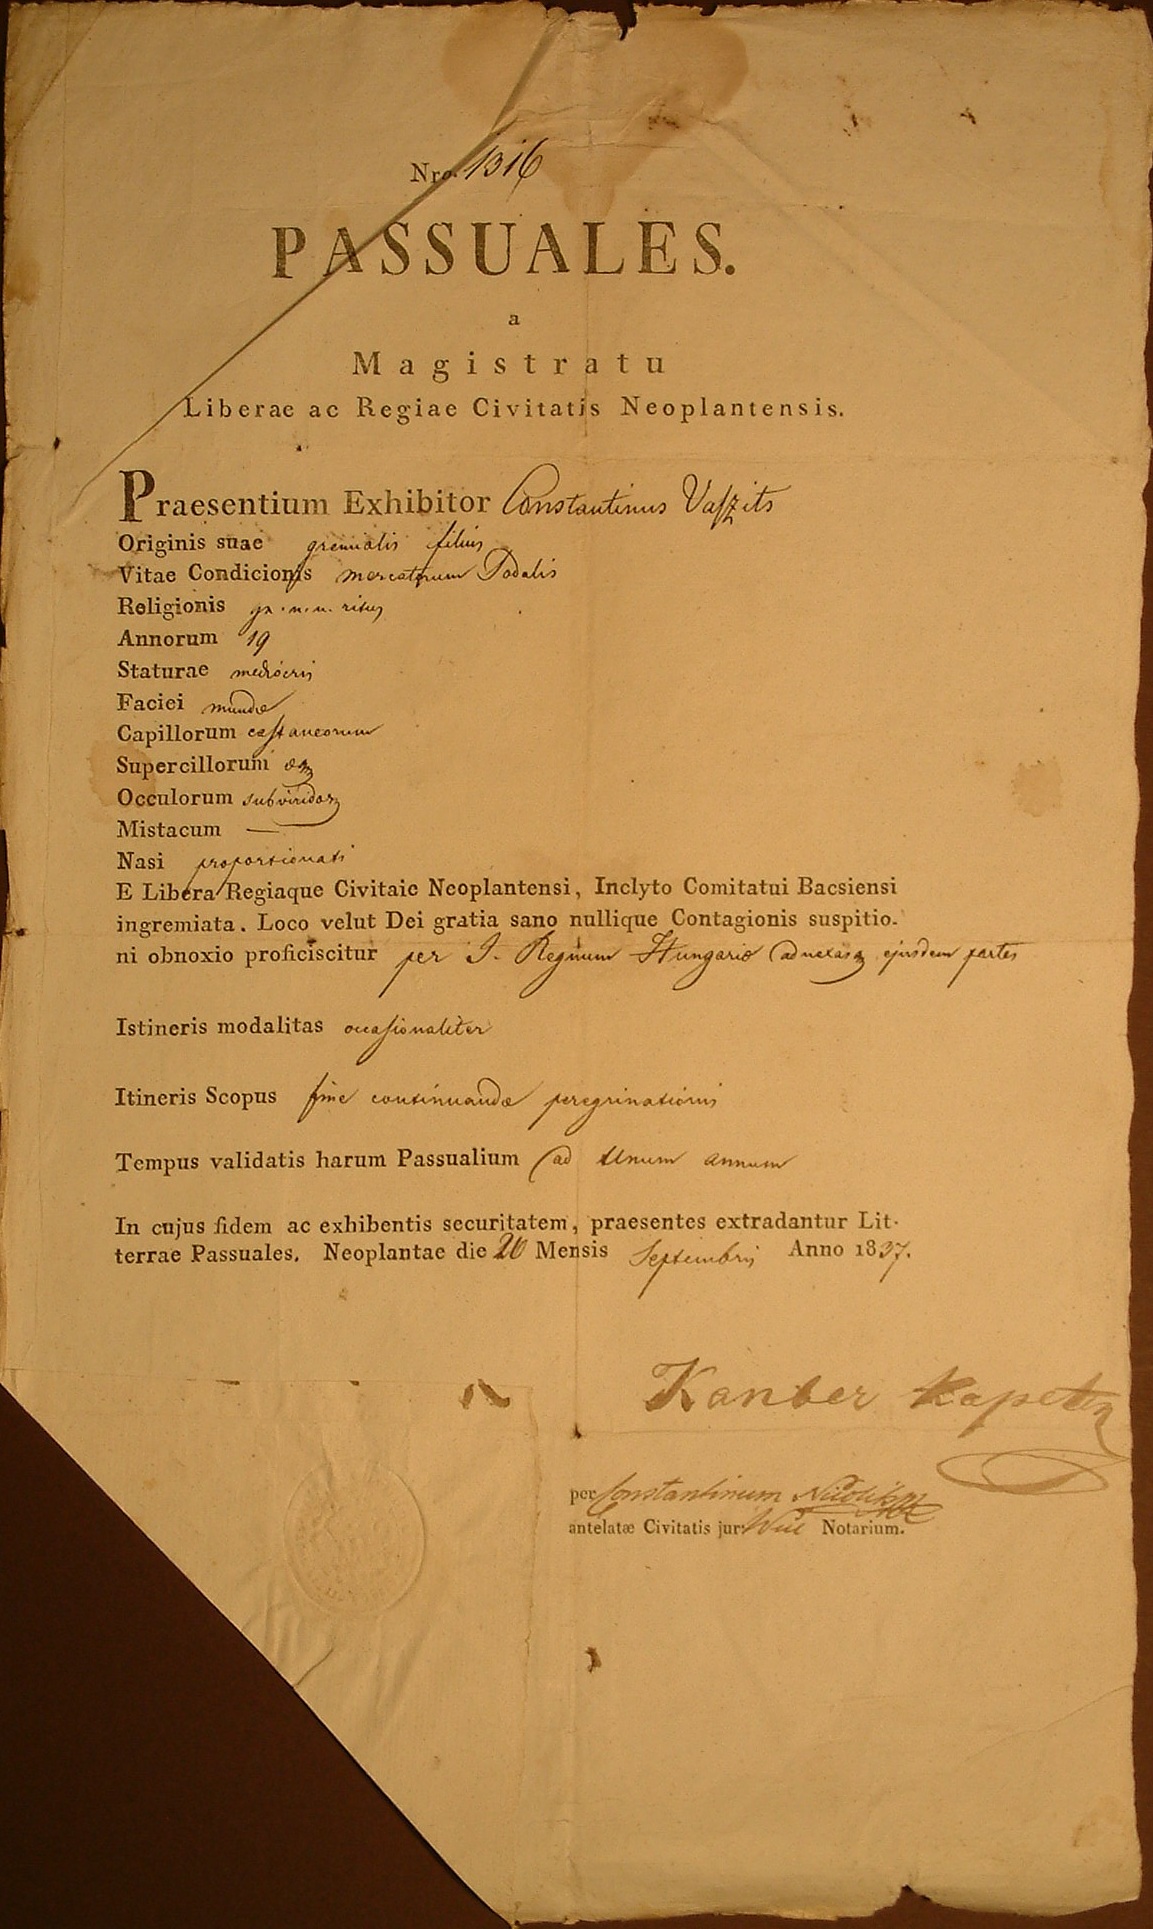 Nro. 1316
PASSUALES.
a
Magistratu
Liberae ac Regiae Civitatis Neoplantensis.
Praesentium Exhibitor Constantinus Vaſzits
Originis suae gremialis filius
Vitae Condicionis mercatorum Sodalis
Religionis gr. n. u. ritus
Annorum 19
Staturae mediocris
Faciei mundae
Capillorum castaneorum
Supercillorum
Occulorum subviridor
Mistacum —
Nasi proportionati
E Libera Regiaque Civitaie Neoplantensi, Inclyto Comitatui Bacsiensi
ingremiata. Loco velut Dei gratia sano nullique Contagionis suspitio-
ni obnoxio proficiscitur per I. Regnum Hungariae adnexasq ejusdem partes
Istineris modalitas occasionaliter
Itineris Scopus fine continuandae peregrinationis
Tempus validatis harum Passualium ad Unum annum
In cujus fidem ac exhibentis securitatem, praesentes extradantur Lit-
terrae Passuales. Neoplantae die 20 Mensis Septembris Anno 1837.
Kanber
per Constantinum
antelatæ Civitatis jur: Vice Notarium.